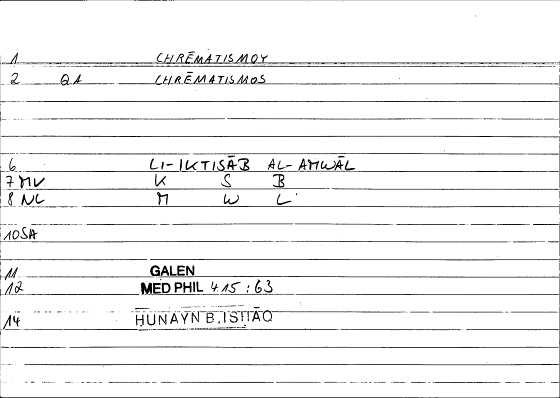 1 CHRĒMATISMOY
2 QA CHRĒMATISMOS
6 LI-IKTISĀB AL-AMWĀL
7 MV K S B
8 NC M W L
10 SĀ
11 GALEN
12 MED PHIL 415:63
14 HUNAYN B. ISHĀQ